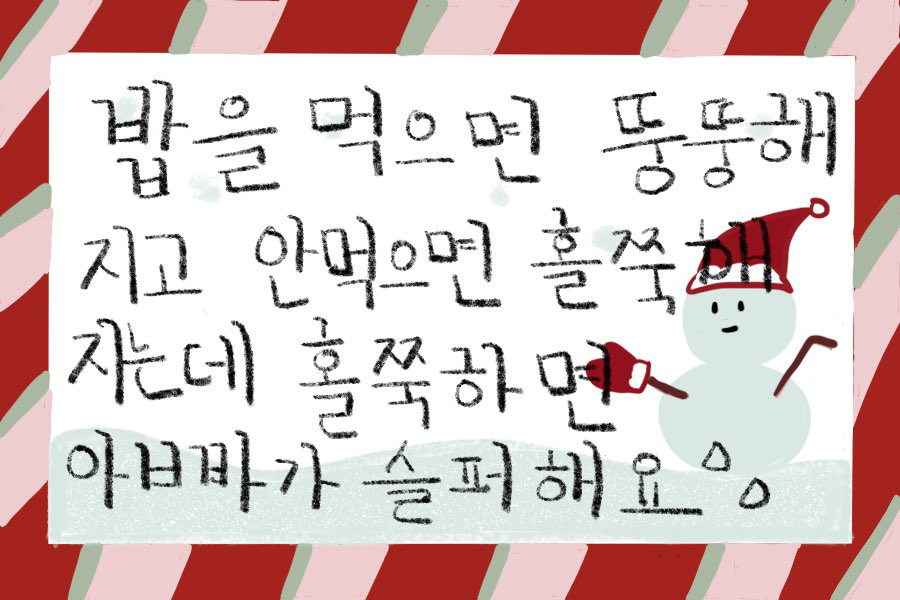 밥을 먹으면 뚱뚱해
지고 안먹으면 홀쭉해
지는데 홀쭉하면
아빠가 슬퍼해요